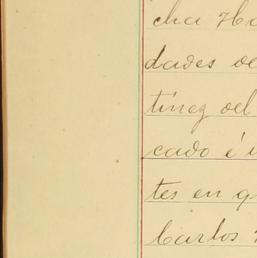 cha Ha
dades de
tinez del
cado é i
tes en q
Carlos